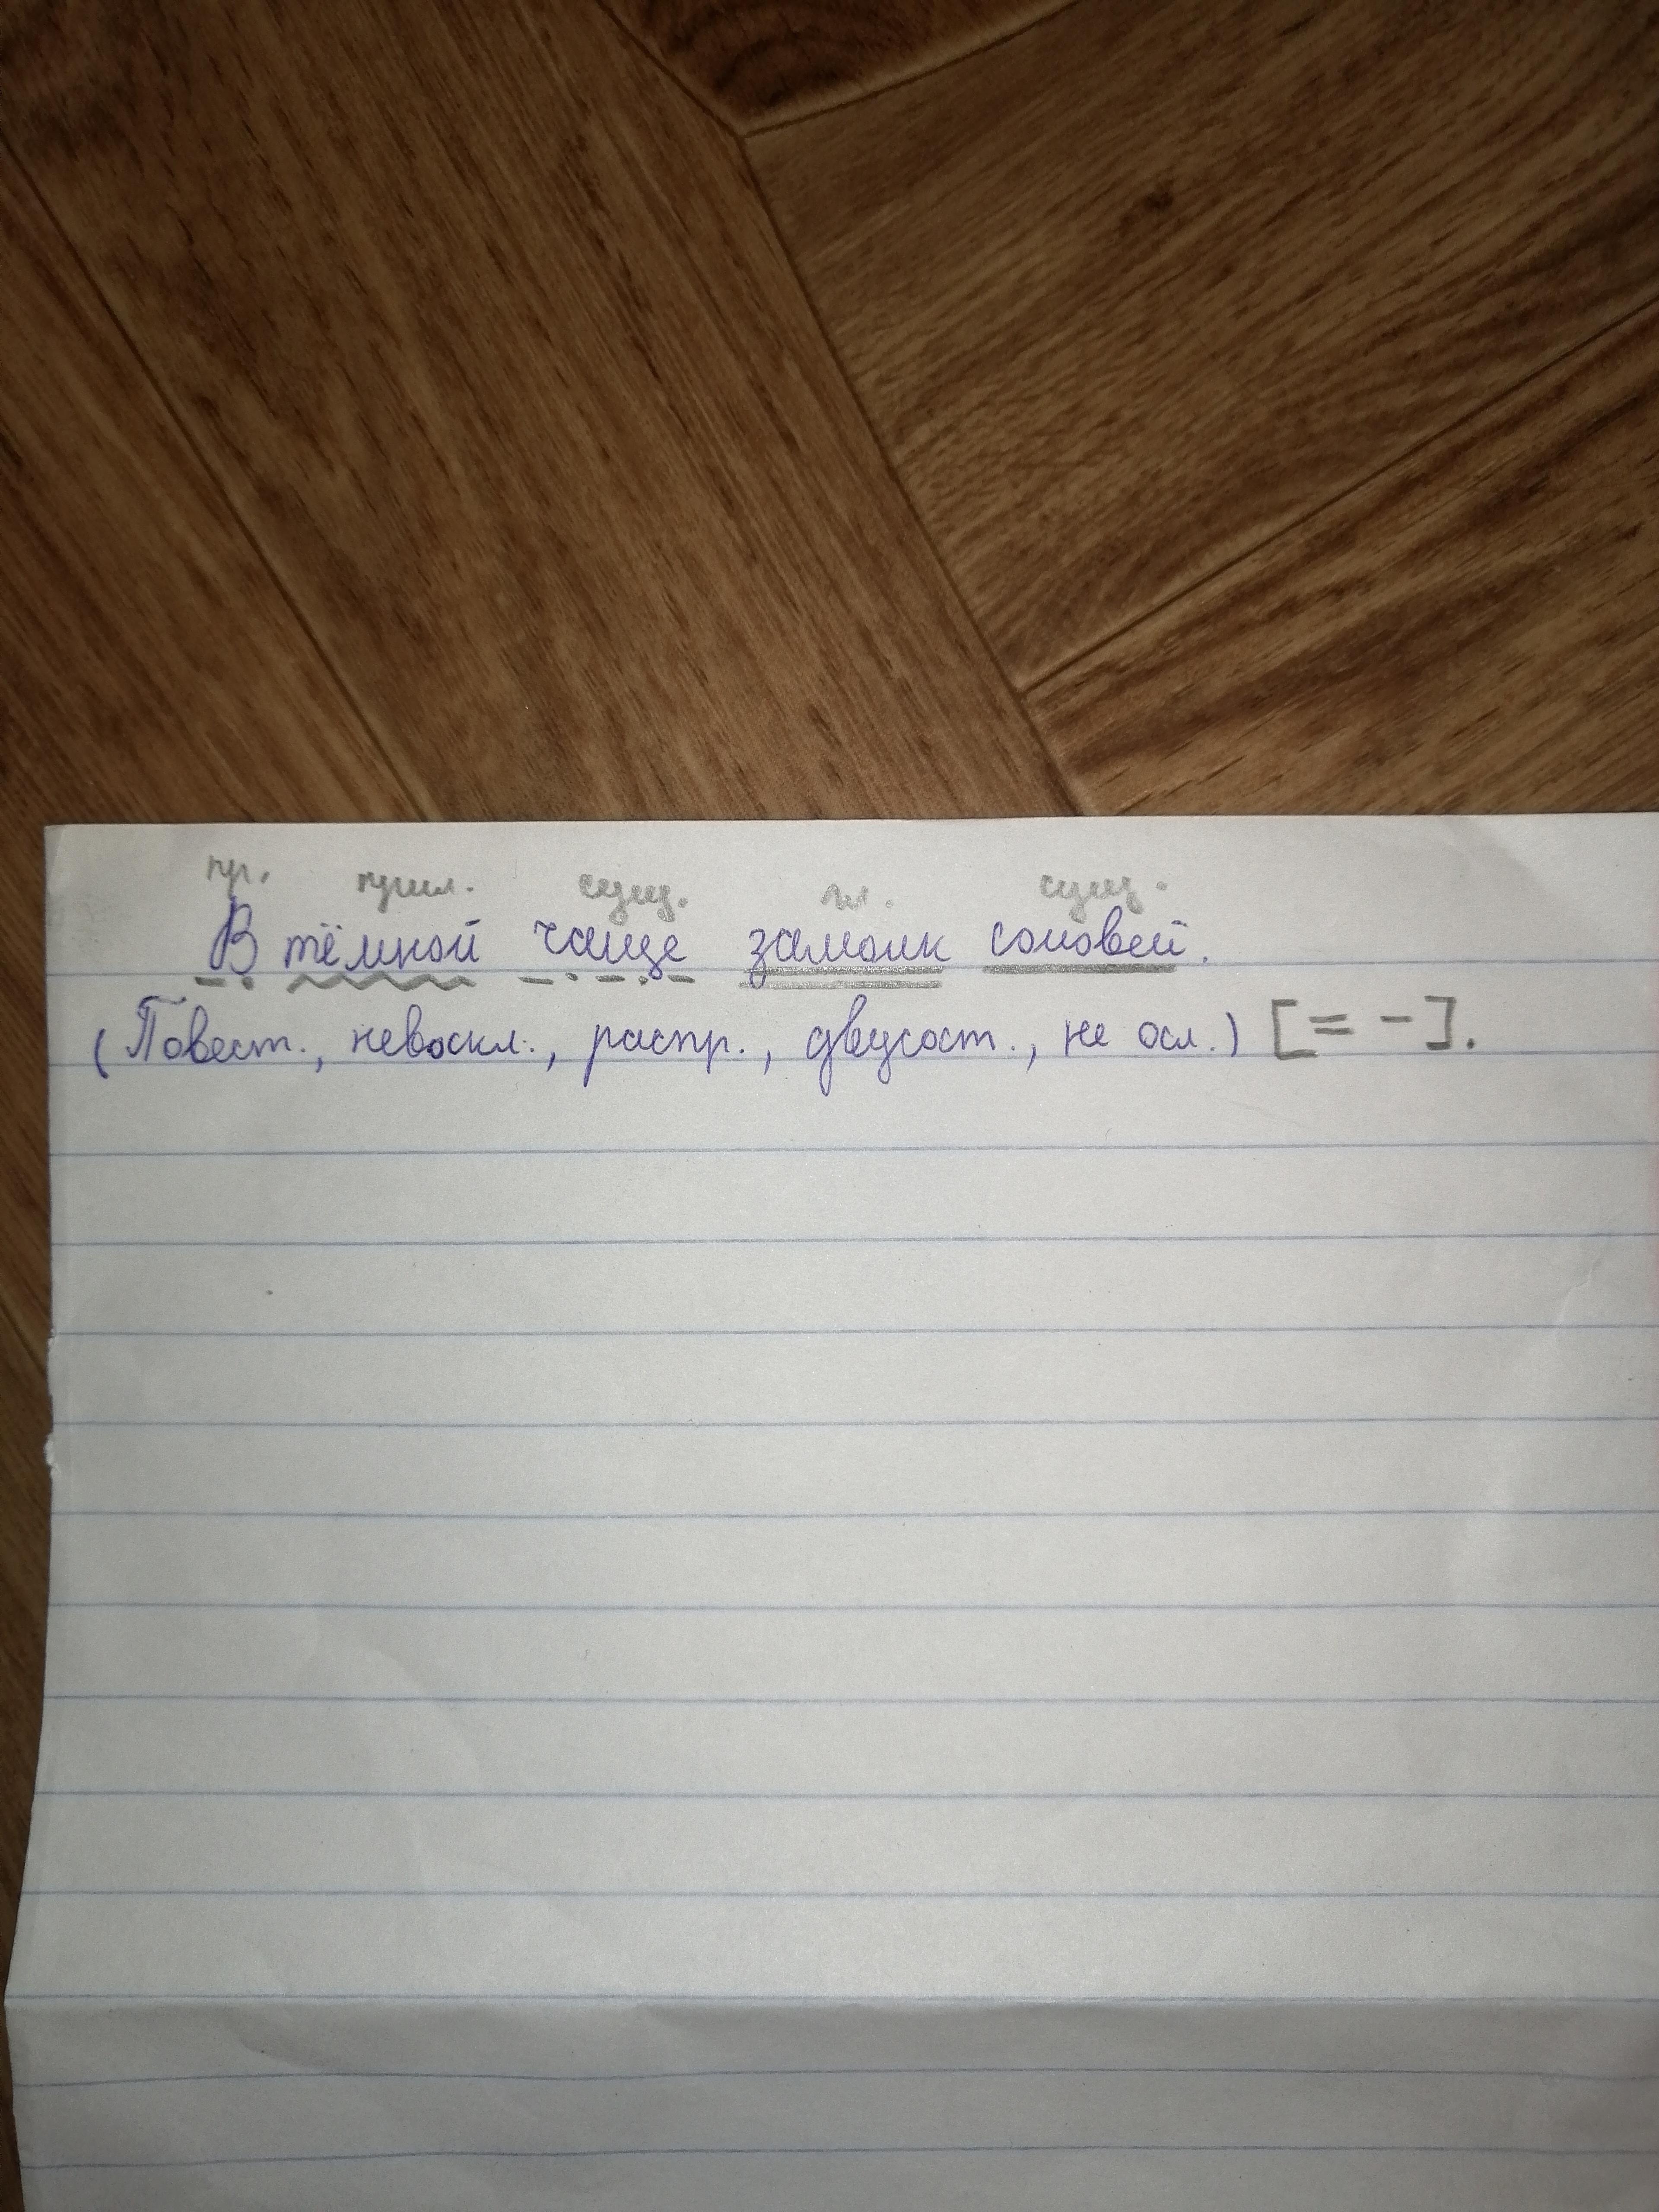 пр. прил. сущ. гл. сущ.
В тёмной чаще замолк соловей.
(Повест., невоскл., распр., двусост., не осл.) [= -].